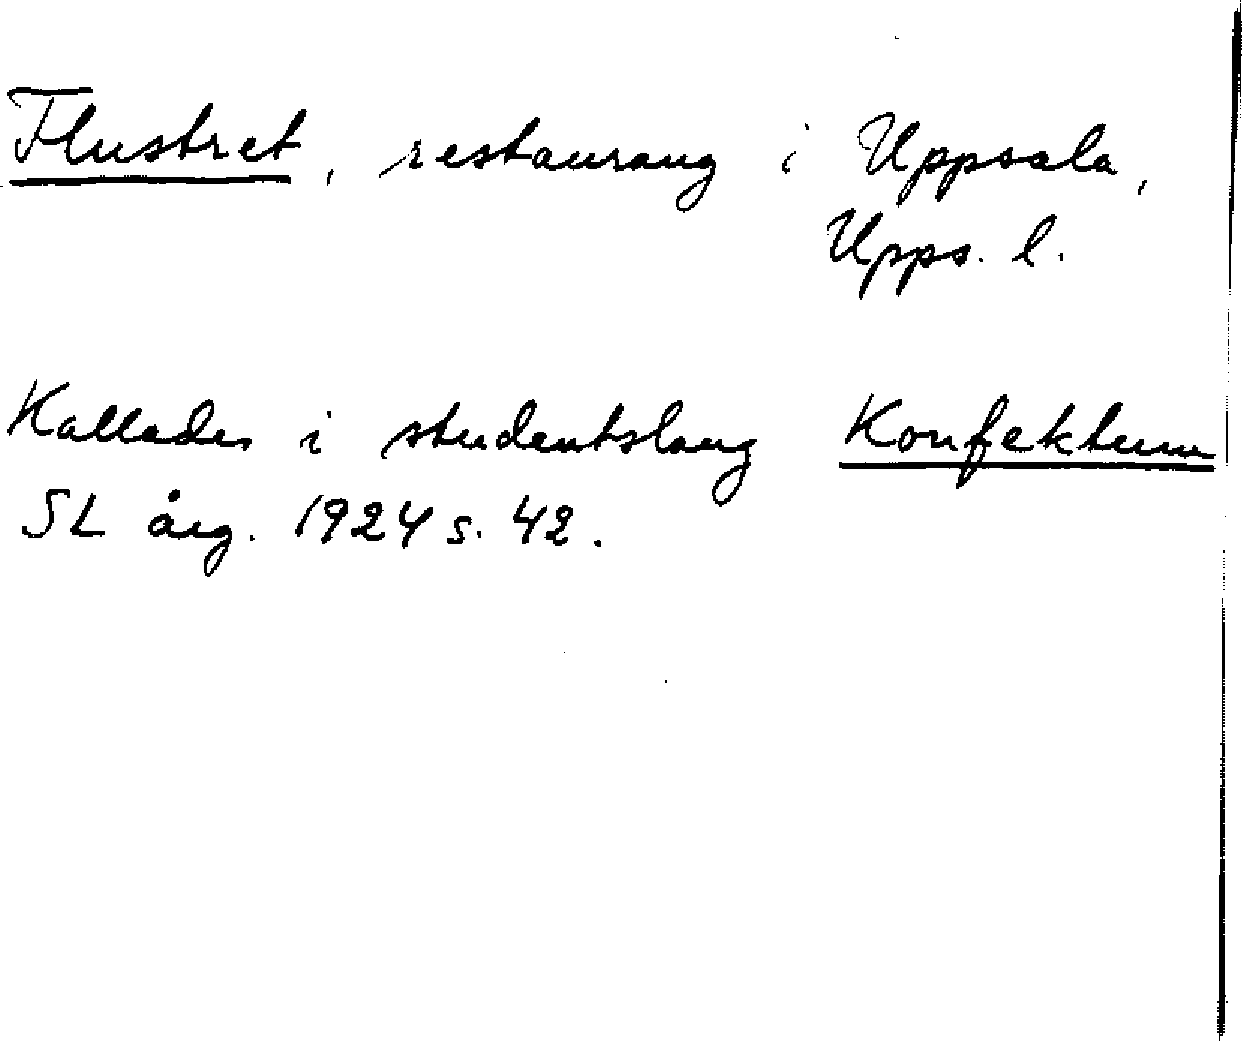 Flustret, restaurang i Uppsala,
Upps. l.
Kallades i studentslang Konfektum
SL årg. 1924 s. 42.